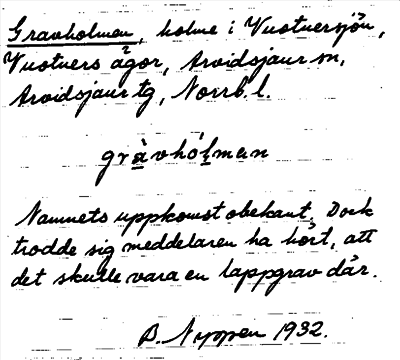 Gravholmen, holme i Vuotnersjön,
Vuotners ägor, Arvidsjaur sn,
Arvidsjaur tg, Norrb. l.
gràvhól̥men
Namnets uppkomst obekant. Dock
trodde sig meddelaren ha hört, att
det skulle vara en lappgrav där.
B. Nyppen 1932.